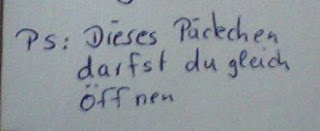 PS: Dieses Päckchen
darfst du gleich
öffnen